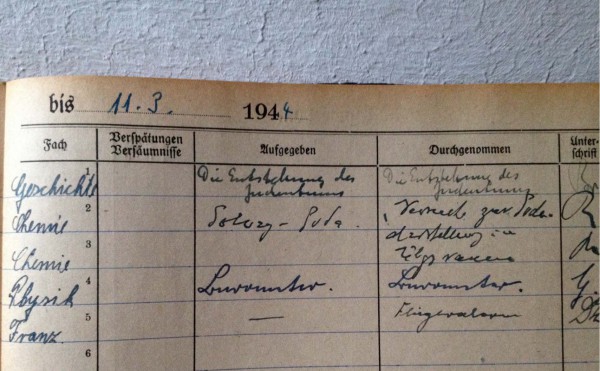 bis 11. 3. 1944
Fach Verspätungen Versäumnisse Aufgegeben Durchgenommen Unterschrift
1 Geschichte Die Entstehung des Judentums Die Entstehung des Judentums
2 Chemie Solvay-Soda. Versuch zur Soda-
3 Chemie darstellung im
4 Physik Barometer. Barometer.
5 Franz. — Fliegeralarm
6